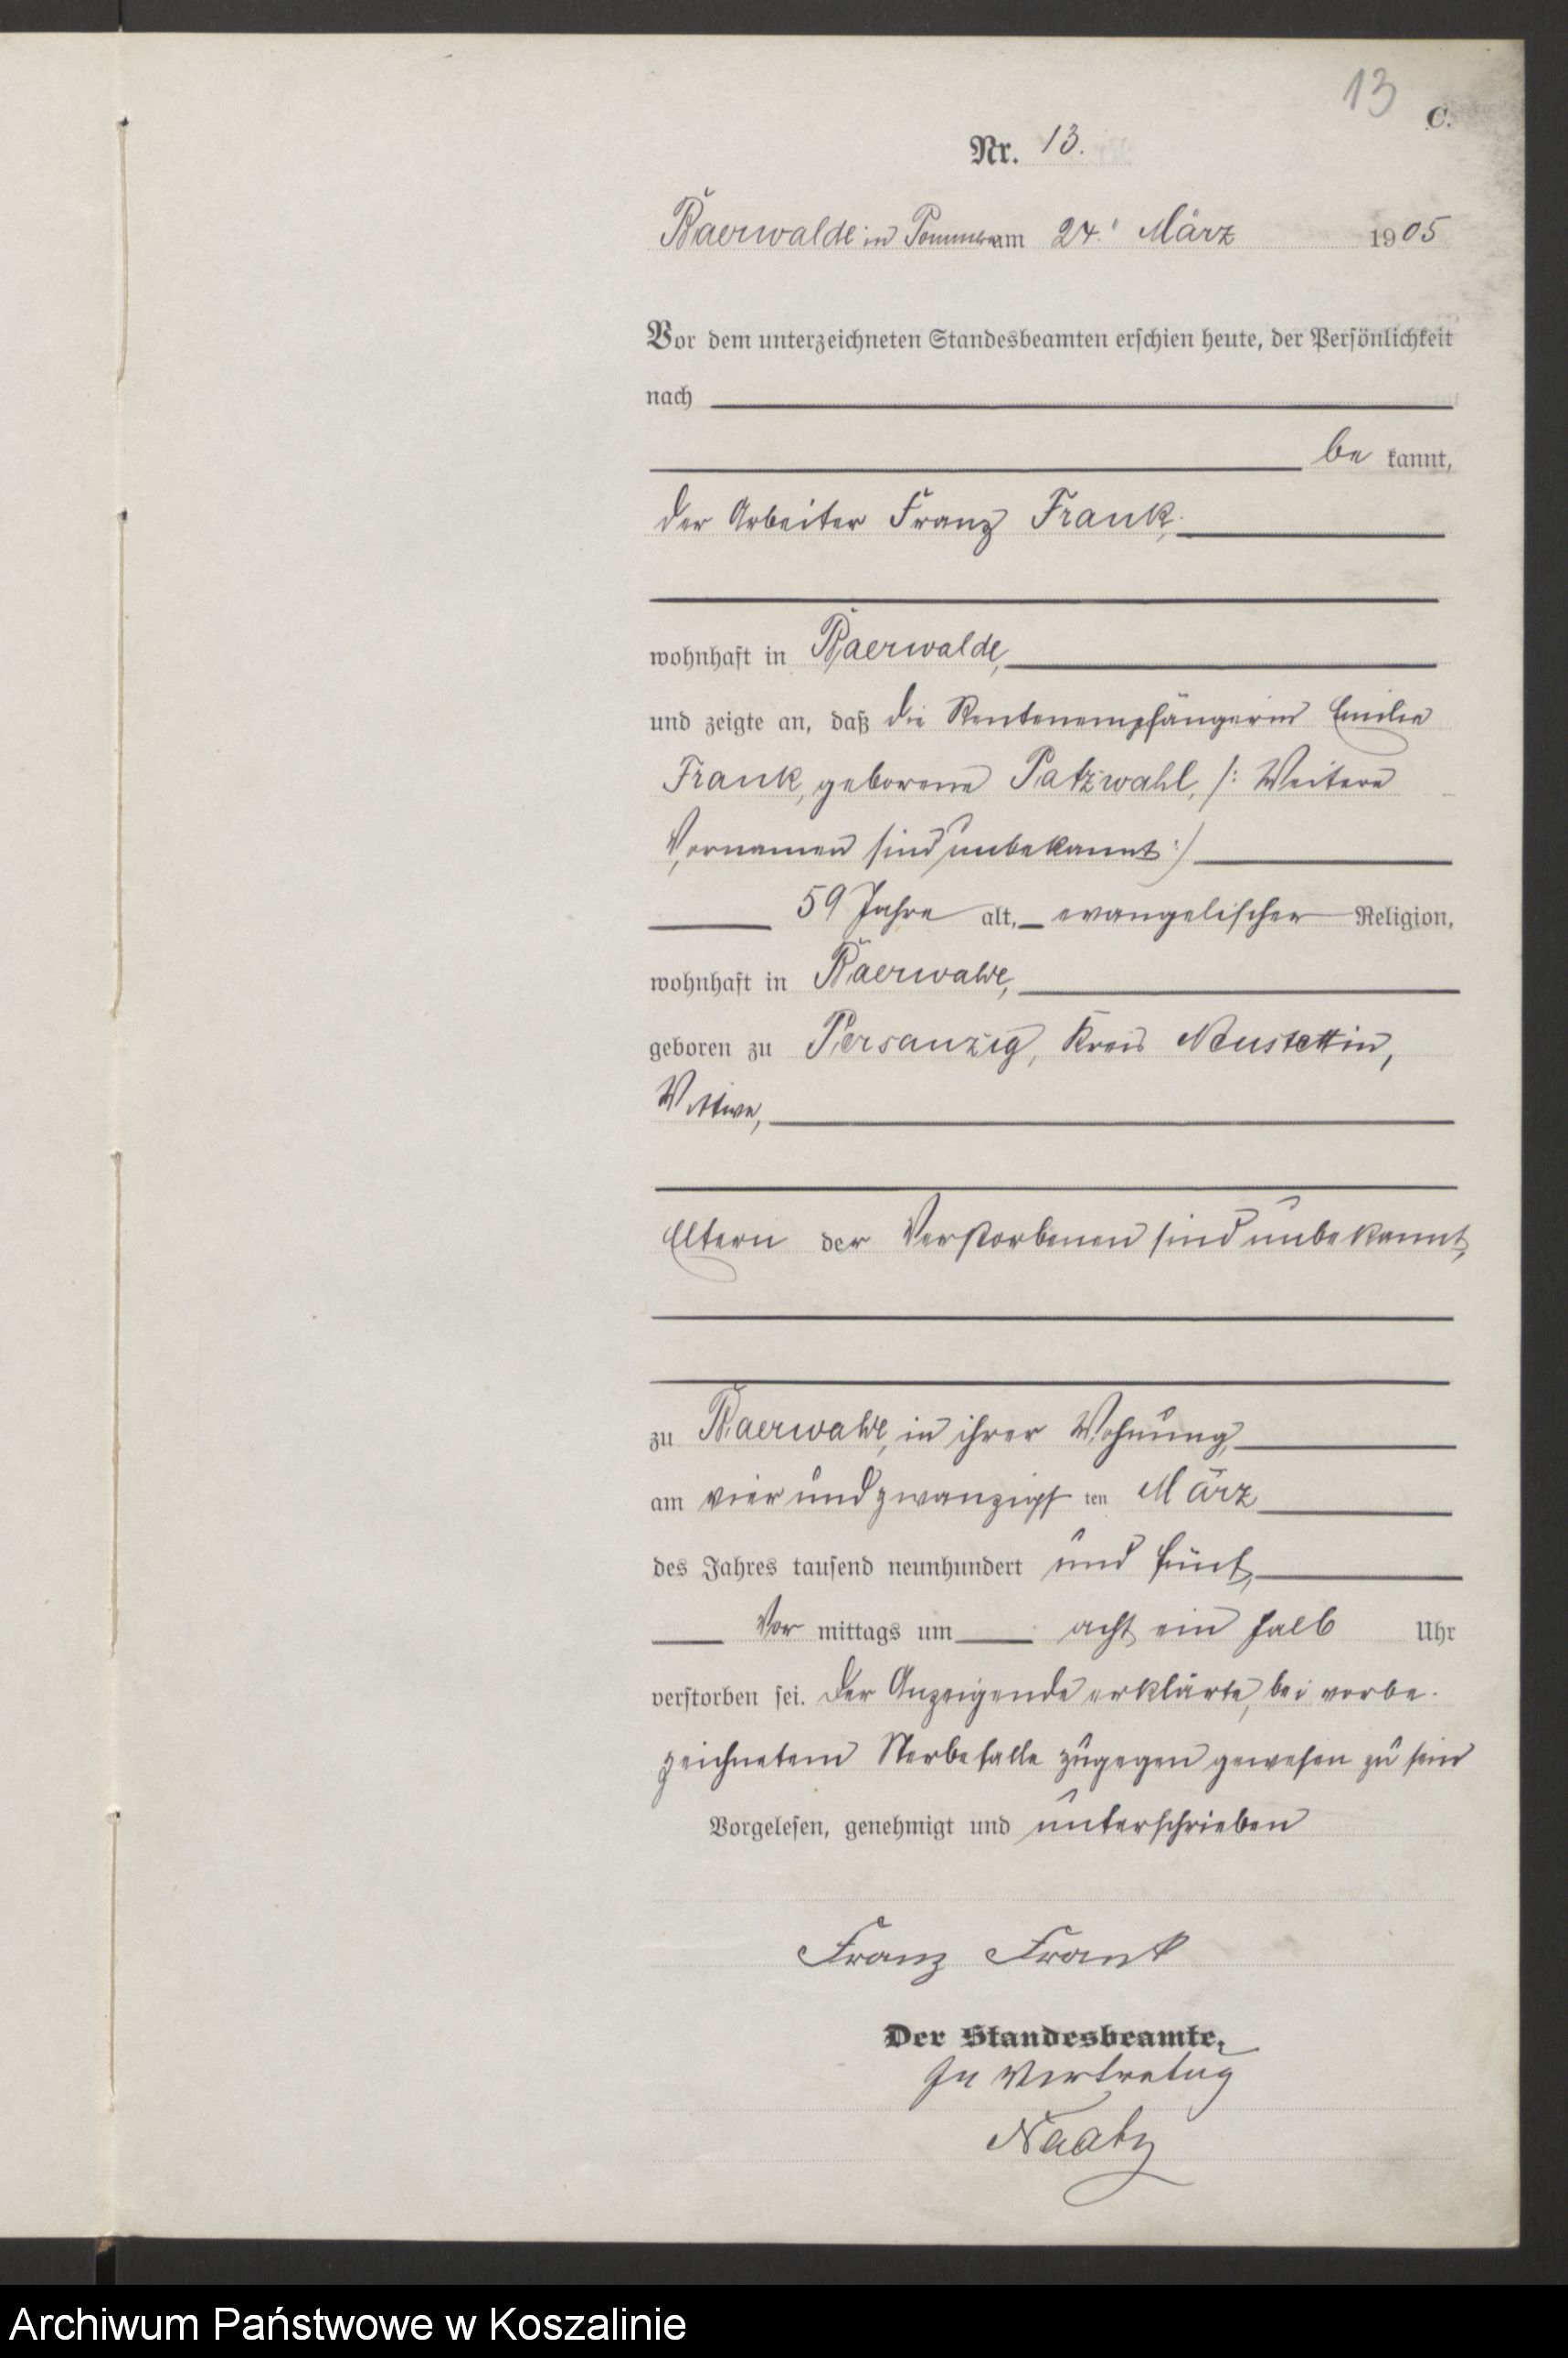 13
C.
Nr. 13.
Baerwalde in Pommern am 24. März 1905
Vor dem unterzeichneten Standesbeamten erschien heute, der Persönlichkeit
nach
be kannt,
der Arbeiter Franz Frank,
wohnhaft in Baerwalde,
und zeigte an, daß die Rentenempfängerin Emilie
Frank, geborene Patzwahl, /: Weitere
Vornamen sind unbekannt :/
59 Jahre alt, evangelischer Religion,
wohnhaft in Baerwalde,
geboren zu Persanzig, Kreis Neustettin,
Wittwe,
Eltern der Verstorbenen sind unbekannt,
zu Baerwalde, in ihrer Wohnung,
am vierundzwanzigst ten März
des Jahres tausend neunhundert und fünf,
Vor mittags um acht ein halb Uhr
verstorben sei. Der Anzeigende erklärte, bei vorbe-
zeichnetem Sterbefalle zugegen gewesen zu sein
Vorgelesen, genehmigt und unterschrieben
Franz Frank
Der Standesbeamte.
In Vertretung
Naatz
Archiwum Państwowe w Koszalinie